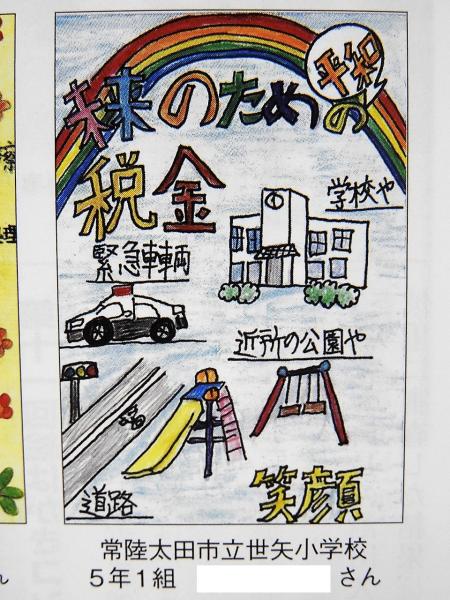 平和
未来のための
税金
学校や
緊急車輌
近所の公園や
道路
笑顔
常陸太田市立世矢小学校
5年1組 さん
理
ん